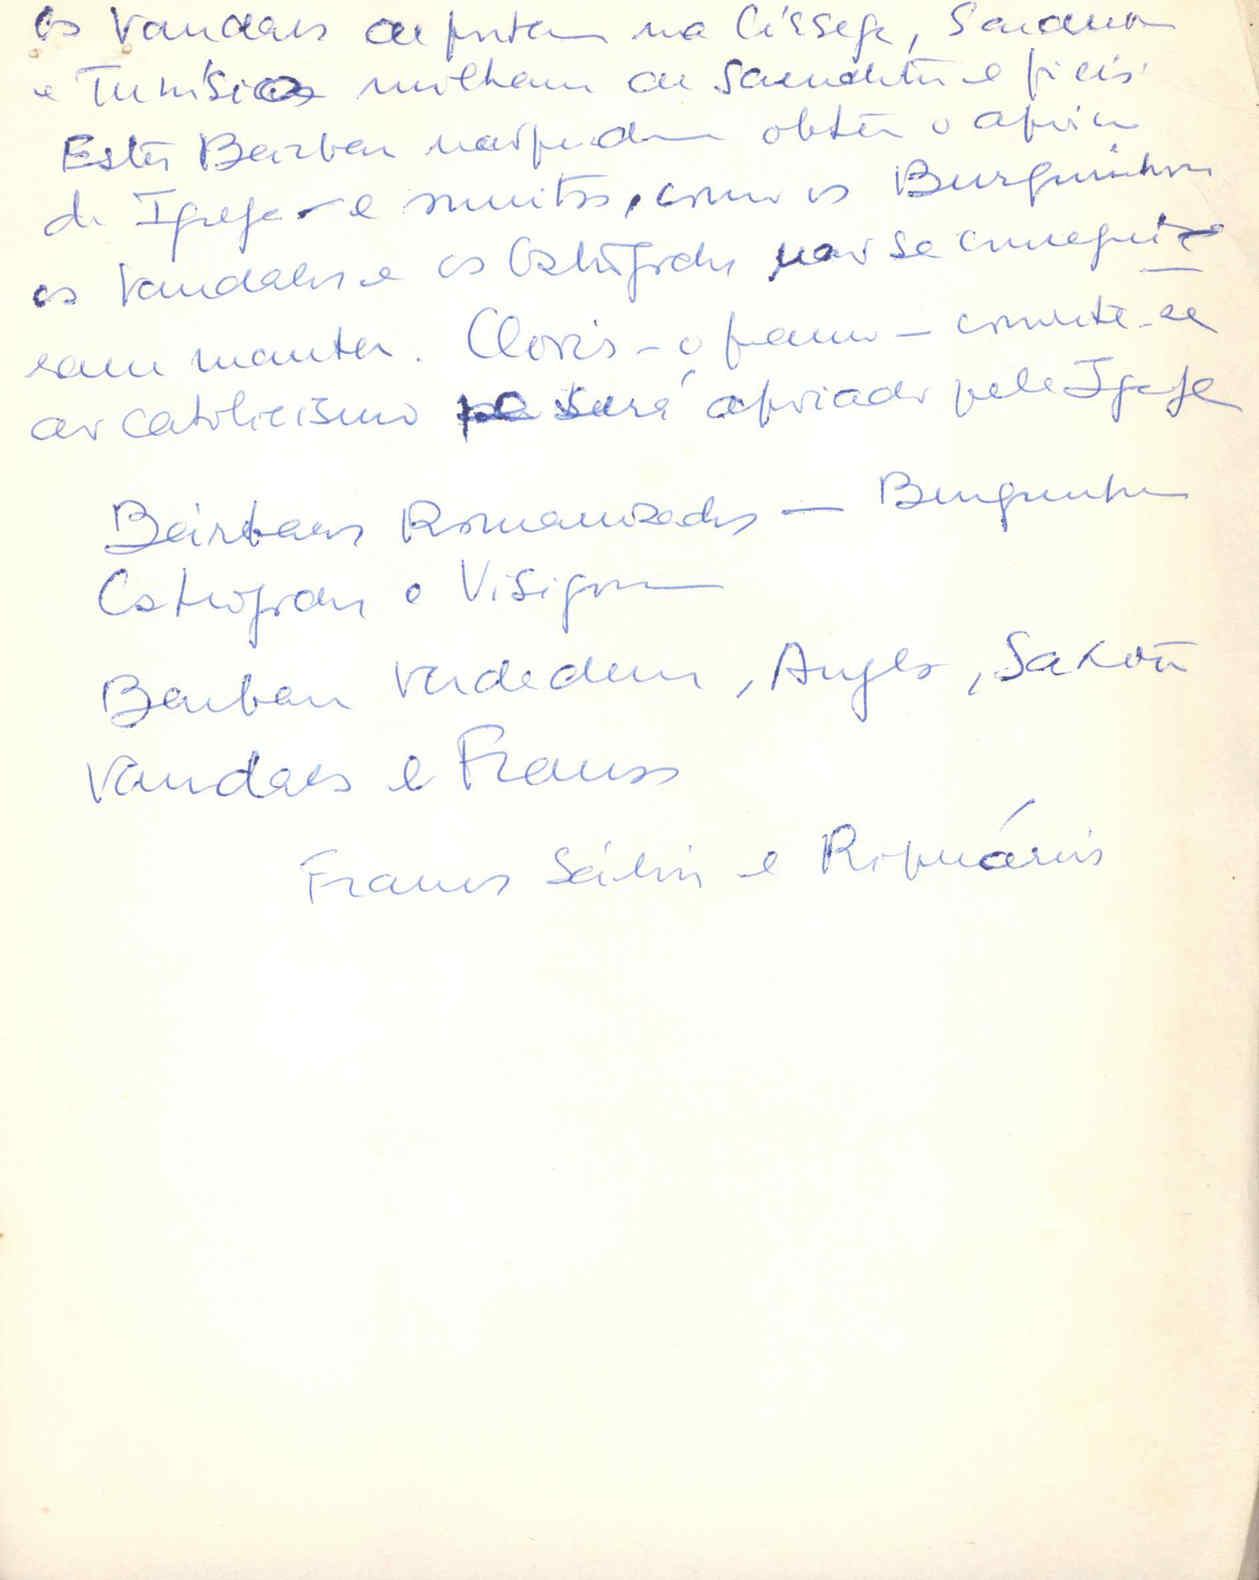 os Vandalos deportam na Córsega, Sardenha
e Tunísia milhares de sacerdotes e fieis
Estes Bárbaros não puderam obter o apoio
da Igreja - e muitos, como os Burguinhões
os Vandalos e os Ostrogodos não se consegui-
ram manter. Clovis - o franco - converte-se
ao catolicismo será apoiado pela Igreja
Bárbaros Romanizados — Burgunhões
Ostrogodos e Visigodos
Barbaros verdadeiros, Anglos, Saxões
Vandalos e Francos
Francos Sálios e Ripuários